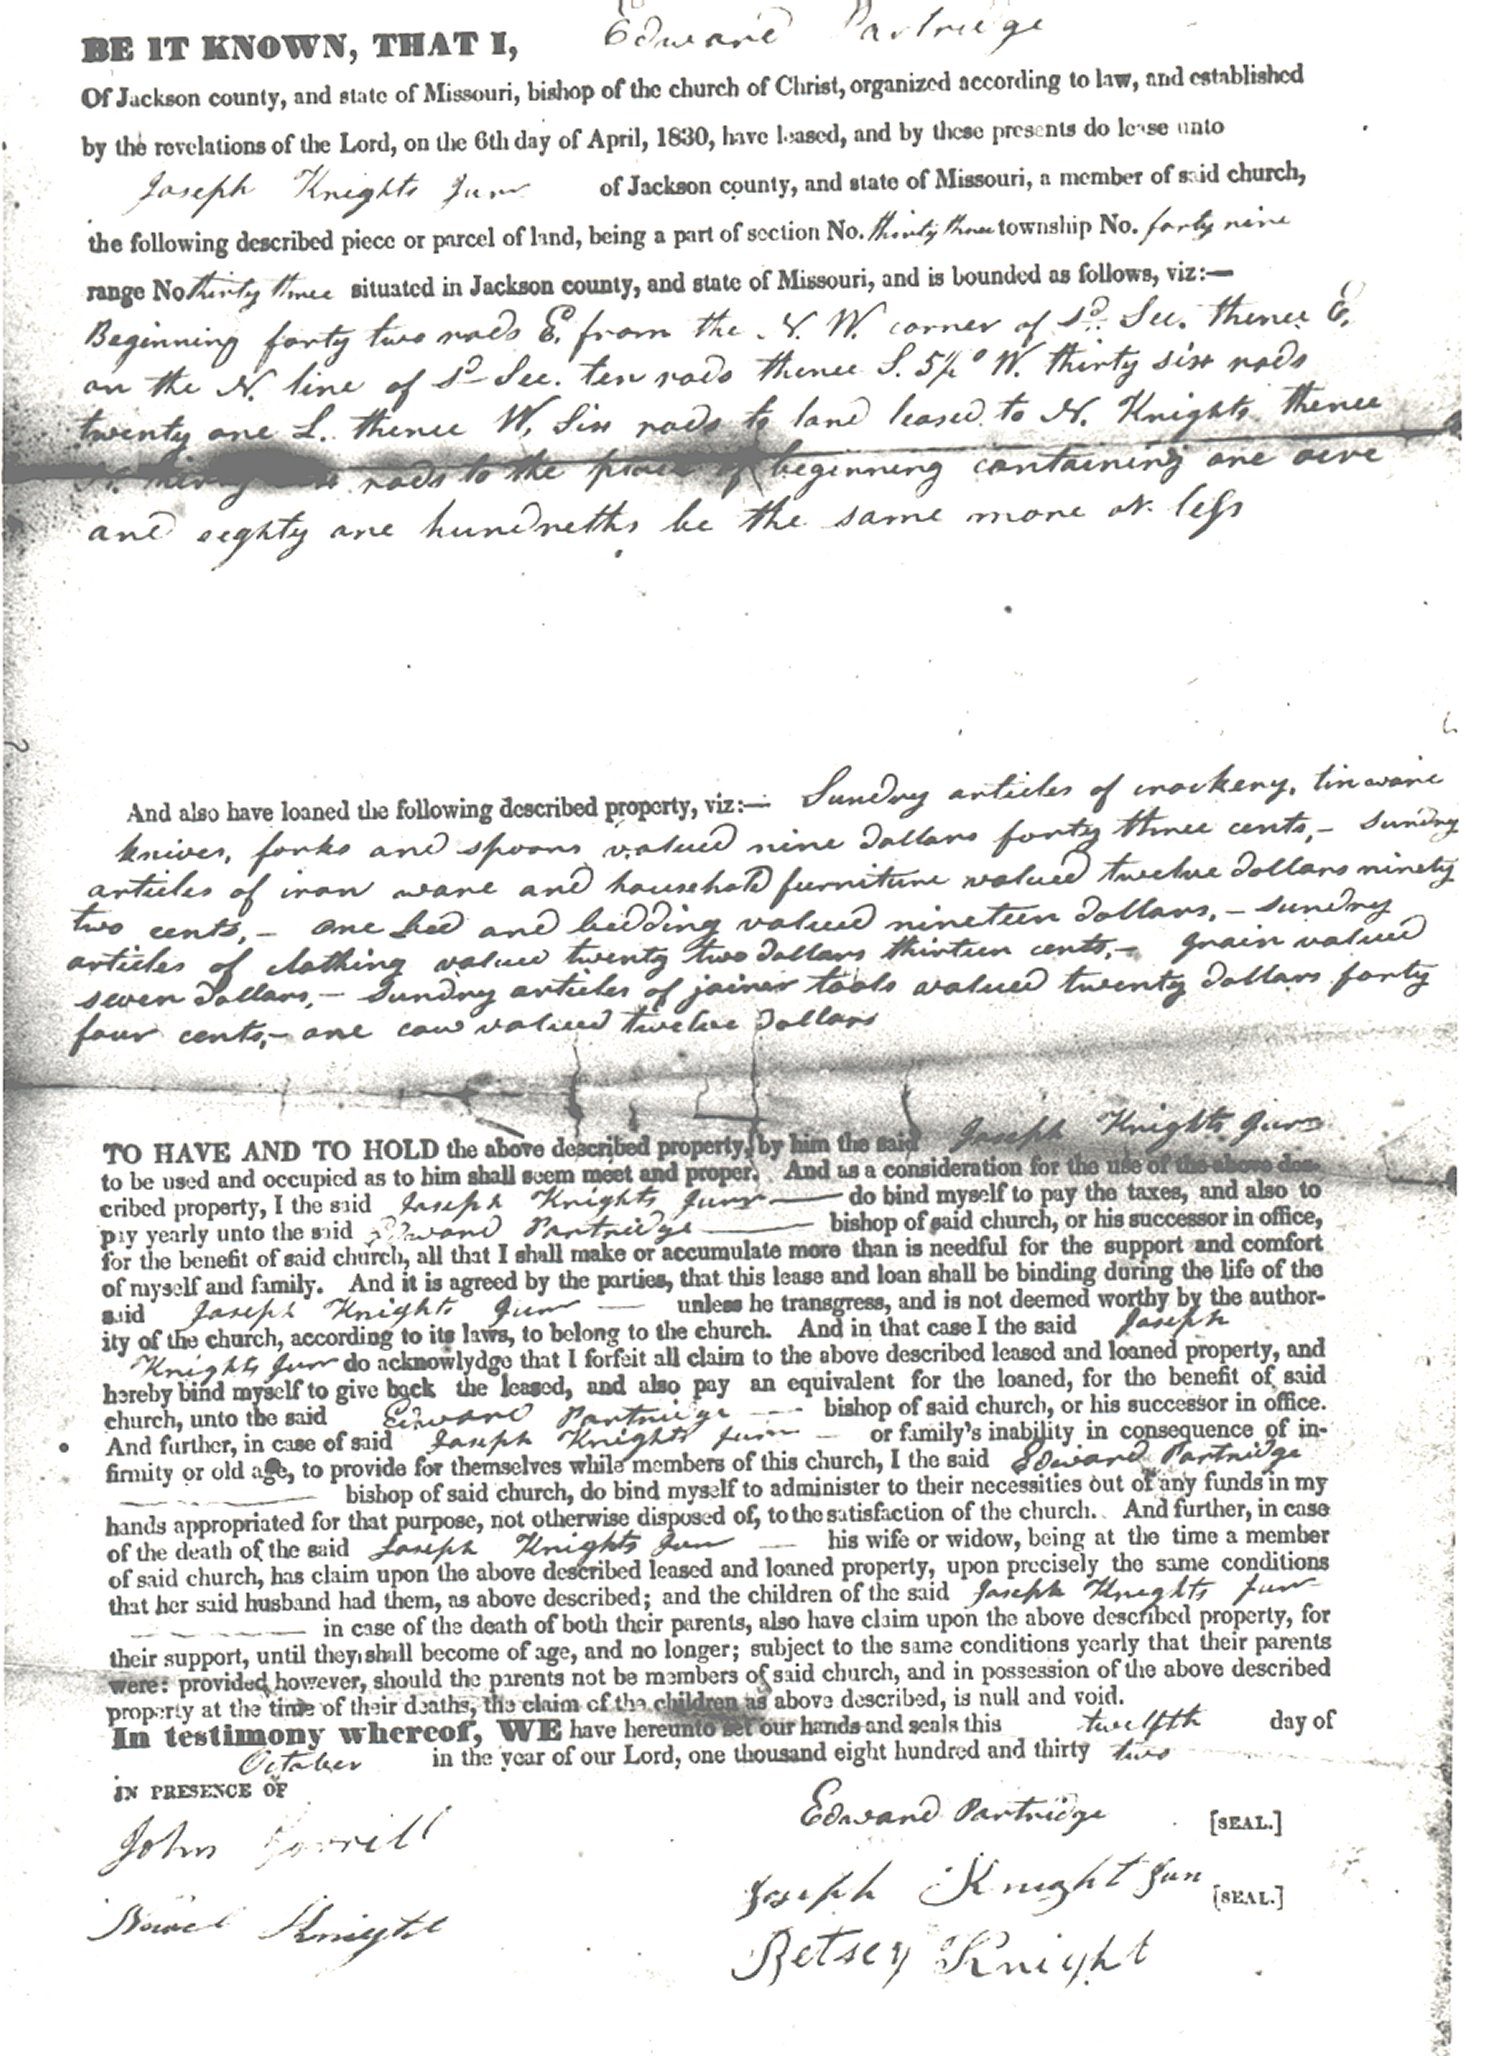 BE IT KNOWN, THAT I, Edward Partridge
Of Jackson county, and state of Missouri, bishop of the church of Christ, organized according to law, and established
by the revelations of the Lord, on the 6th day of April, 1830, have leased, and by these presents do lease unto
Joseph Knights Junr of Jackson county, and state of Missouri, a member of said church,
the following described piece or parcel of land, being a part of section No. thirty three township No. forty nine
range No thirty three situated in Jackson county, and state of Missouri, and is bounded as follows, viz:—
Beginning forty two rods E. from the N. W. corner of sd. Sec. thence E.
on the N. line of sd Sec. ten rods thence S. 5½° W. thirty six rods
twenty one L. thence W. Six rods to land leased to N. Knights thence
N. rods to the place of beginning containing one acre
and eighty one hundreths be the same more or less
And also have loaned the following described property, viz:— Sundry articles of crockery, tin ware
knives, forks and spoons valued nine dollars forty three cents,– sundry
articles of iron ware and household furniture valued twelve dollars ninety
two cents,– one bed and bedding valued nineteen dollars,– sundry
articles of clothing valued twenty two dollars thirteen cents,– grain valued
seven dollars,– sundry articles of joiner tools valued twenty dollars forty
four cents,– one cow valued twelve dollars
TO HAVE AND TO HOLD the above described property, by him the said Joseph Knights Junr
to be used and occupied as to him shall seem meet and proper. And as a consideration for the use of the above des-
cribed property, I the said Joseph Knights Junr — do bind myself to pay the taxes, and also to
pay yearly unto the said Edward Partridge — bishop of said church, or his successor in office,
for the benefit of said church, all that I shall make or accumulate more than is needful for the support and comfort
of myself and family. And it is agreed by the parties, that this lease and loan shall be binding during the life of the
said Joseph Knights Junr — unless he transgress, and is not deemed worthy by the author-
ity of the church, according to its laws, to belong to the church. And in that case I the said Joseph
Knights Junr do acknowlydge that I forfeit all claim to the above described leased and loaned property, and
hereby bind myself to give back the leased, and also pay an equivalent for the loaned, for the benefit of said
church, unto the said Edward Partridge — bishop of said church, or his successor in office.
And further, in case of said Joseph Knights Junr — or family's inability in consequence of in-
firmity or old age, to provide for themselves while members of this church, I the said Edward Partridge
— bishop of said church, do bind myself to administer to their necessities out of any funds in my
hands appropriated for that purpose, not otherwise disposed of, to the satisfaction of the church. And further, in case
of the death of the said Joseph Knights Junr — his wife or widow, being at the time a member
of said church, has claim upon the above described leased and loaned property, upon precisely the same conditions
that her said husband had them, as above described; and the children of the said Joseph Knights Junr
— in case of the death of both their parents, also have claim upon the above described property, for
their support, until they shall become of age, and no longer; subject to the same conditions yearly that their parents
were: provided however, should the parents not be members of said church, and in possession of the above described
property at the time of their deaths, the claim of the children as above described, is null and void.
In testimony whereof, WE have hereunto set our hands and seals this twelfth day of
October in the year of our Lord, one thousand eight hundred and thirty two
IN PRESENCE OF
Edward Partridge [SEAL.]
John
Joseph Knight Jun [SEAL.]
Knight
Betsey Knight